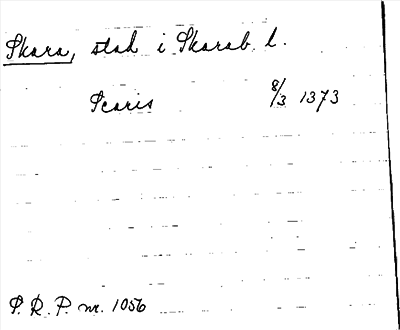 Skara, stad i Skarab. l.
Scaris 8/3 1373
S. R. P. nr. 1056